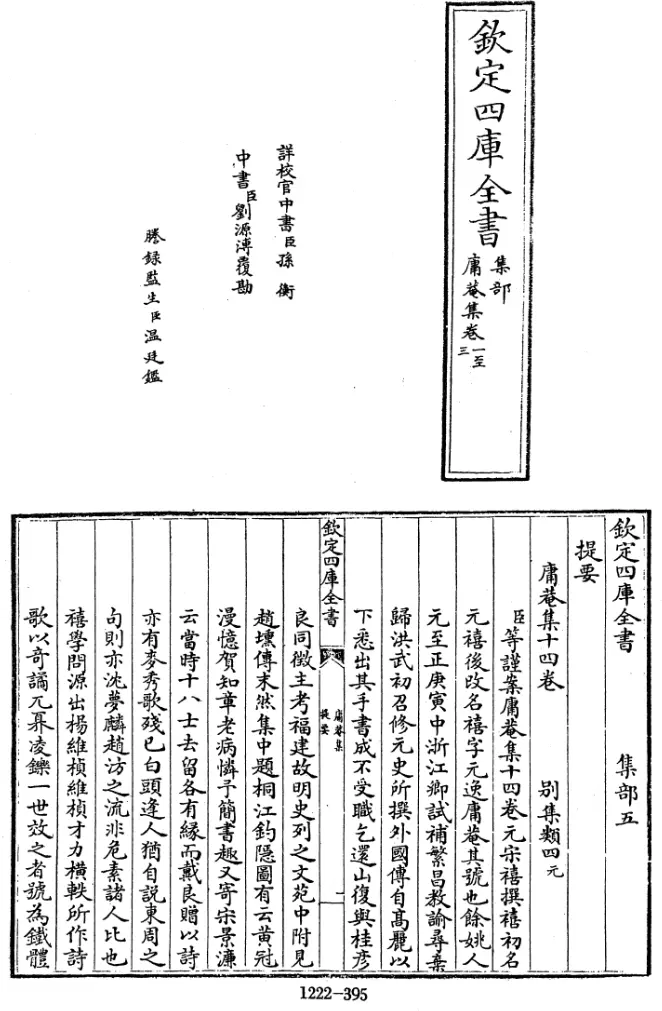 欽定四庫全書
集部
庸菴集卷一至三
詳校官中書臣孫衡
中書臣劉源溥覆勘
謄錄監生臣温廷鑑
欽定四庫全書 集部五
提要
庸菴集十四卷 别集類四元
臣等謹案庸菴集十四卷元宋禧撰禧初名
元禧後改名禧字元逸庸菴其號也餘姚人
元至正庚寅中浙江鄉試補繁昌教諭尋棄
歸洪武初召修元史所撰外國傳自髙麗以
下悉出其手書成不受職乞還山復與桂彦
欽定四庫全書 庸菴集 提要 一
良同徴主考福建故明史列之文苑中附見
趙壎傳末然集中題桐江釣隱圖有云黄冠
漫憶賀知章老病憐予簡書趣又寄宋景濂
云當時十八士去留各有緣而戴良贈以詩
亦有麥秀歌殘已白頭逢人猶自說東周之
句則亦沈夢麟趙汸之流非危素諸人比也
禧學問源出楊維楨維楨才力横軼所作詩
歌以奇譎兀奡凌鑠一世效之者號為鐵體
1222-395